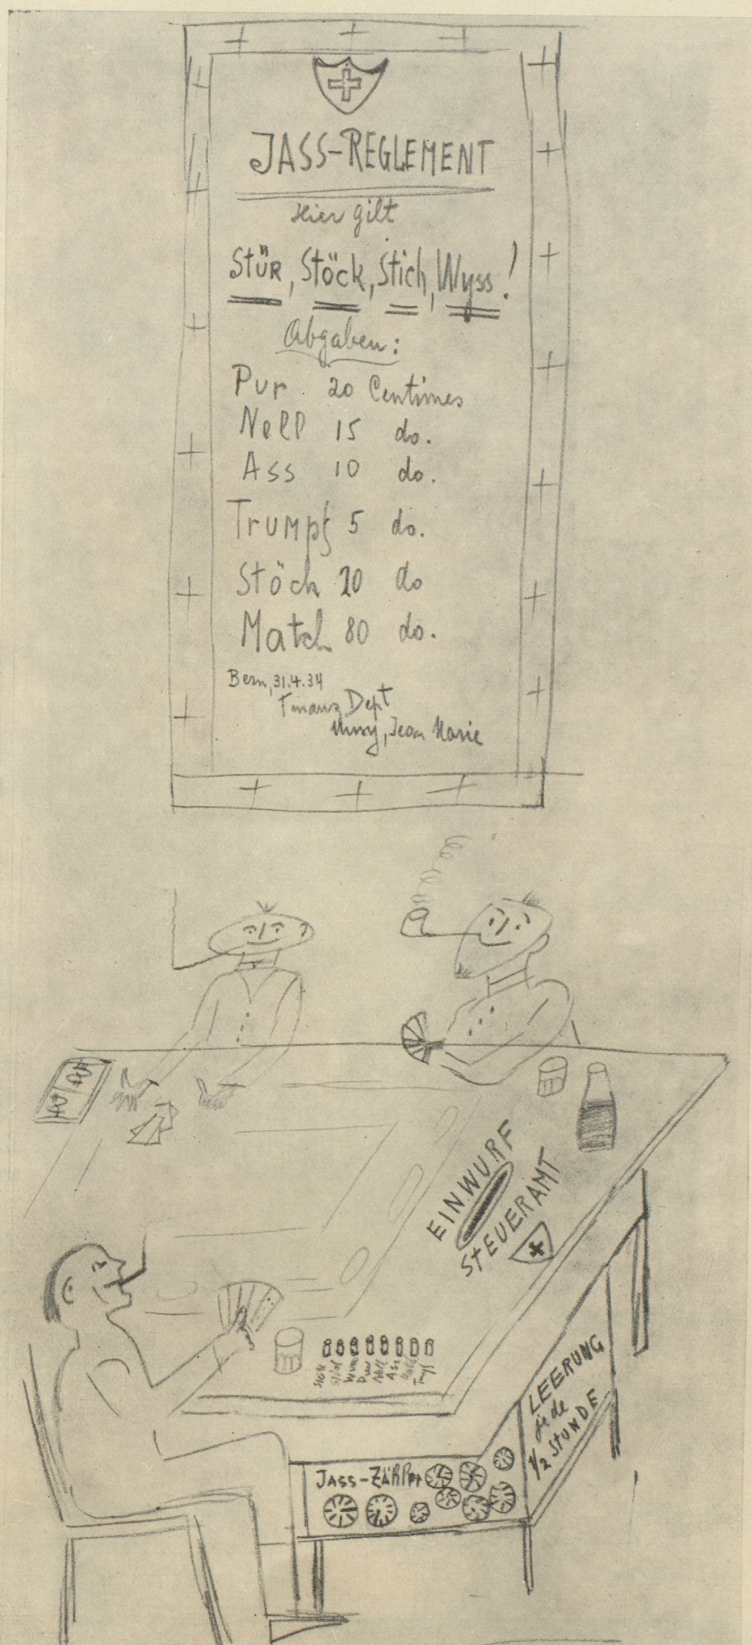 JASS-REGLEMENT
Hier gilt
Stür, Stöck, Stich, Wyss!
Abgaben:
Pur 20 Centimes
Nell 15 do.
Ass 10 do.
Trumpf 5 do.
Stöck 20 do
Match 80 do.
Bern, 31.4.34
Finanz Dept
Musy, Jean Marie
EINWURF
STEUERAMT
LEERUNG
jede
1/2 STUNDE
JASS-ZÄHler